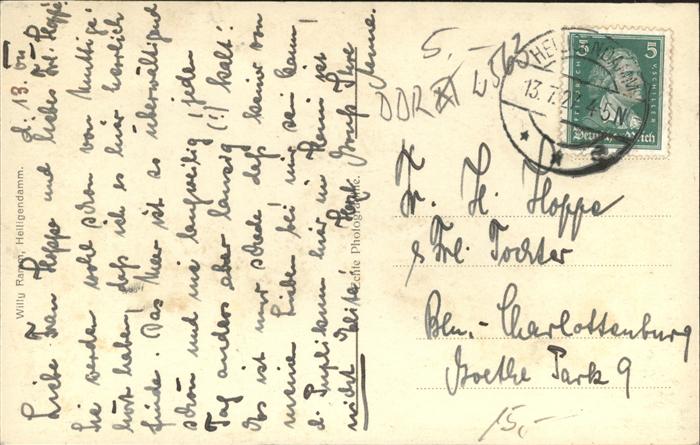 d. 13. VII
Liebe Frau Hoppe und liebes Frl. Hoppe!
Sie werden wohl schon von Muttige
hört haben, daß ich es hier herrlich
finde. Das Meer ist so überwältigend
schön und nie langweilig! jeden
Tag anders aber lausig (!) kalt!
Es ist nur schade daß keiner von
meinen Lieben bei mir sein kann,
d. Duplikenn hier im Heim ist
nicht Gruß Ihre
Anne.
Willy Ramm, Heiligendamm.
Echte Photographie.
5.-
DDR
13.7.2 4-5N
a
5 5
FRIEDRICH V. SCHILLER
Deutsches Reich
Fr. H. Hoppe
& Frl. Tochter
Bln.-Charlottenburg
Goethe Park 9
15,-